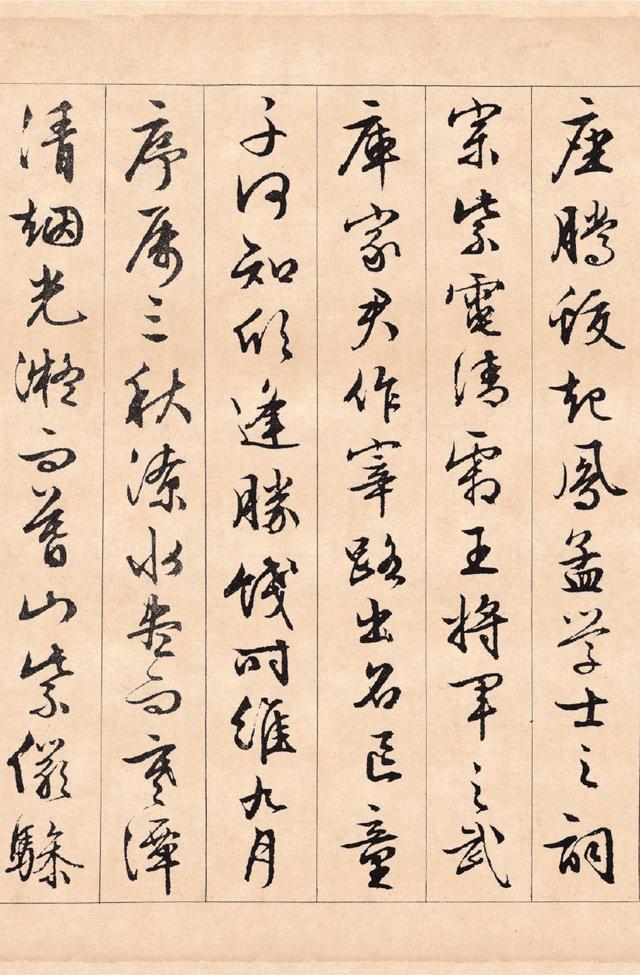 座騰蛟起鳳孟学士之詞
宗紫電清霜王将軍之武
庫家君作宰路出名區童
子何知欣逢勝餞时維九月
序属三秋潦水尽而寒潭
清烟光凝而暮山紫儼驂